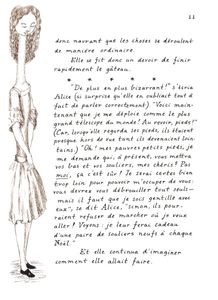 11
donc navrant que les choses se déroulent
de manière ordinaire.
Elle se fit donc un devoir de finir
rapidement le gâteau.
* * * * * * *
"De plus en plus bizurrant!" s'écria
Alice (si surprise qu'elle en oubliait tout à
fait de parler correctement). "Voici main-
tenant que je me déploie comme le plus
grand télescope du monde! Au revoir, pieds!"
(Car, lorsqu'elle regarda ses pieds, ils étaient
presque hors de vue tant ils devenaient loin-
tains.) "Oh! mes pauvres petits pieds, je
me demande qui, à présent, vous mettra
vos bas et vos souliers, mes chéris! Pas
moi, ça c'est sûr! Je serai certes bien
trop loin pour pouvoir m'occuper de vous:
vous devrez vous débrouiller tout seuls...
mais il faut que je sois gentille avec
eux", se dit Alice, "sinon, ils pour-
raient refuser de marcher où je veux
aller! Voyons: je leur ferai cadeau
d'une paire de souliers neufs à chaque
Noël."
Et elle continua d'imaginer
comment elle allait faire.